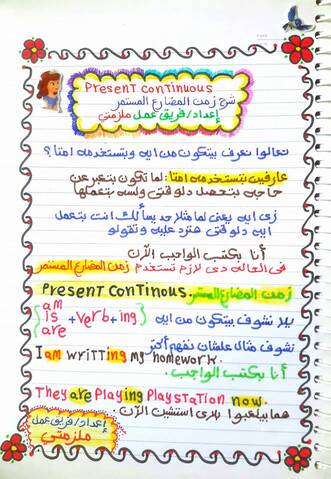 Present Continuous
شرح زمن المضارع المستمر
إعداد/فريق عمل ملزمتي
تعالوا نعرف بيتكون من ايه وبنستخدمه امتا؟
عارفين بنستخدمه امتا: لما تكون بتعبر عن
حاجه بتحصل دلوقتي ولسه بتعملها
زي ايه يعني لما مثلا حد يسألك انت بتعمل
ايه دلوقتي هترد عليه وتقولو
أنا بكتب الواجب الآن
في الحاله دي لازم تستخدم زمن المضارع المستمر
Present Continous. زمن المضارع المستمر
am
is + verb + ing يلا نشوف بيتكون من ايه
are
نشوف مثال علشان نفهم أكتر
I am writting my homework.
أنا بكتب الواجب.
They are Playing Playstation now.
هما بيلعبوا بلاي استيشن الآن.
إعداد/فريق عمل
ملزمتي